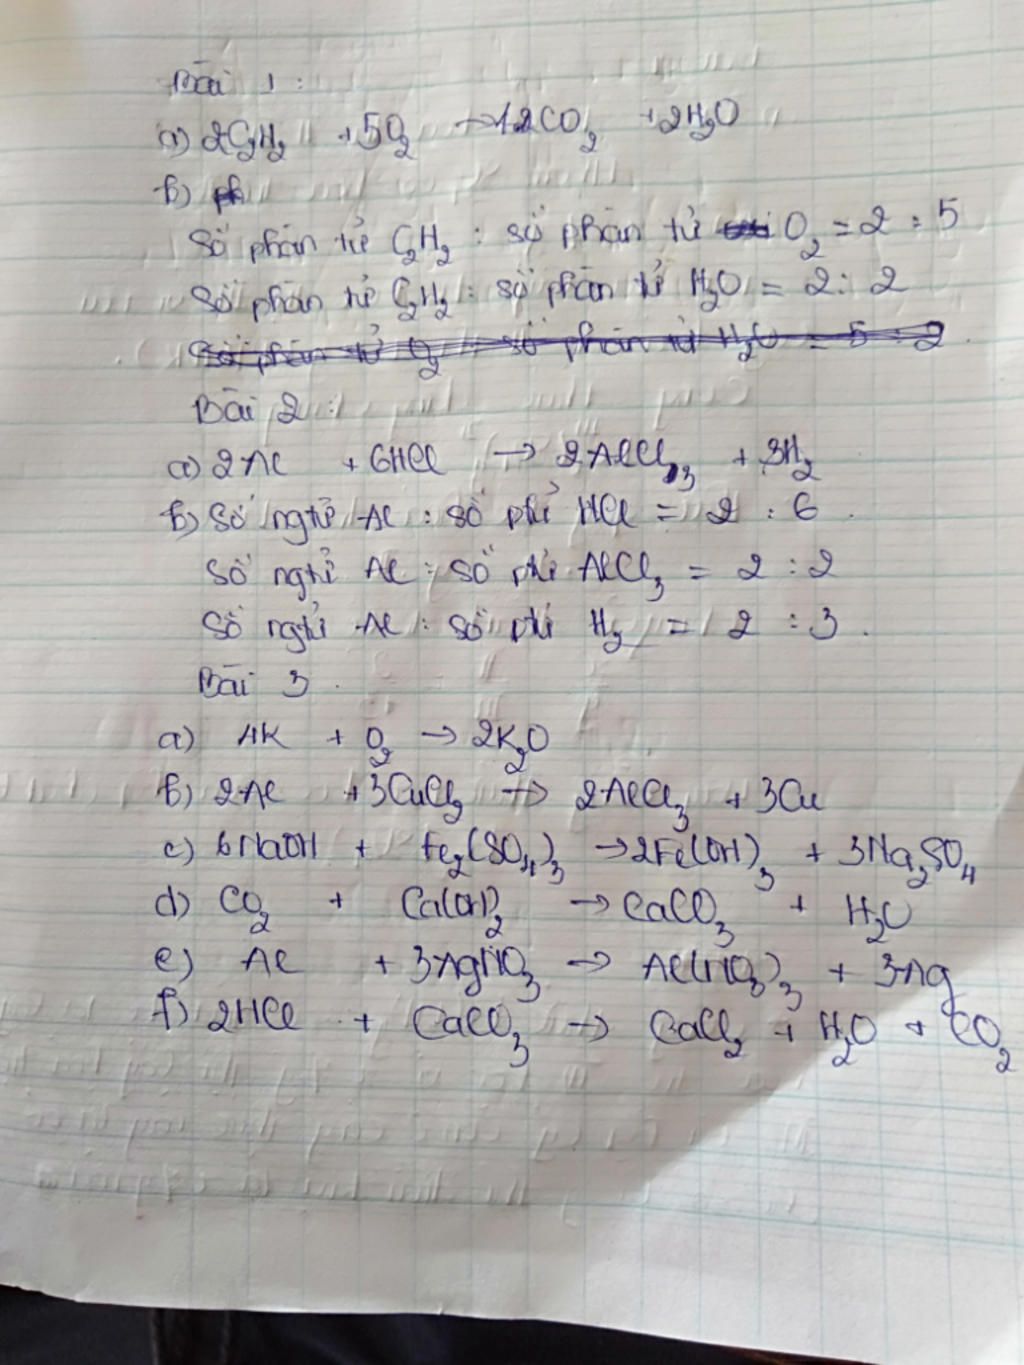 Bài 1 :
a) 2C₂H₂ + 5O₂ → 12CO₂ + 2H₂O
b)
Số phân tử C₂H₂ : số phân tử O₂ = 2 : 5
Số phân tử C₂H₂ : số phân tử H₂O = 2 : 2
Số phân tử O₂ : số phân tử H₂O = 5 : 2
Bài 2 :
a) 2Al + 6HCl → 2AlCl₃ + 3H₂
b) Số ngtử Al : số ptử HCl = 2 : 6 .
Số ngtử Al : số ptử AlCl₃ = 2 : 2
Số ngtử Al : số ptử H₂ = 2 : 3 .
Bài 3 .
a) 4K + O₂ → 2K₂O
b) 2Al + 3CuCl₂ → 2AlCl₃ + 3Cu
c) 6NaOH + Fe₂(SO₄)₃ → 2Fe(OH)₃ + 3Na₂SO₄
d) CO₂ + Ca(OH)₂ → CaCO₃ + H₂O
e) Al + 3AgNO₃ → Al(NO₃)₃ + 3Ag
f) 2HCl + CaCO₃ → CaCl₂ + H₂O + CO₂